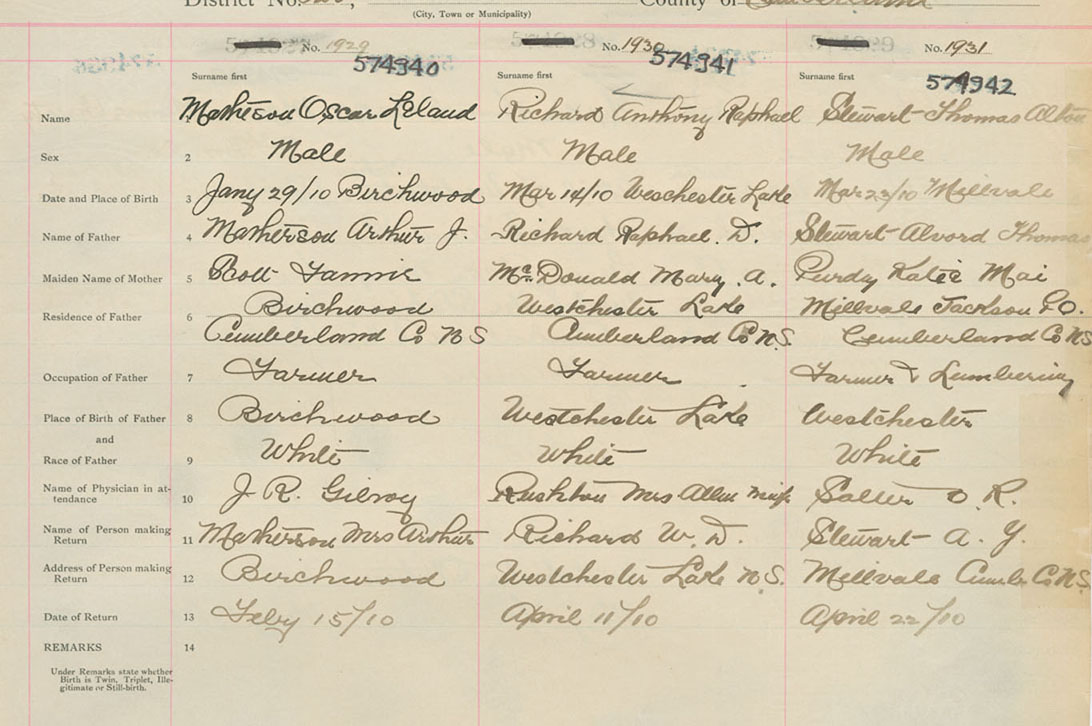 District No. County of Cumberland
(City, Town or Municipality)
No. 1929 No. 1930 No. 1931
574940 574941 574942
Surname first Surname first Surname first
Name 1 Matheson Oscar Leland Richard Anthony Raphael Stewart Thomas Alton
Sex 2 Male Male Male
Date and Place of Birth 3 Jany 29/10 Birchwood Mar 14/10 Weschester Lake Mar 23/10 Millvale
Name of Father 4 Matherson Arthur J. Richard Raphael. D. Stewart Alvord Thomas
Maiden Name of Mother 5 Scott Fannie McDonald Mary. A. Purdy Katie Mai
Residence of Father 6 Birchwood Westchester Lake Millvale Jackson P.O.
Cumberland Co N S Cumberland Co N.S. Cumberland Co N S
Occupation of Father 7 Farmer Farmer Farmer & Lumbering
Place of Birth of Father 8 Birchwood Westchester Lake Westchester
and
Race of Father 9 White White White
Name of Physician in at-
tendance 10 J R. Gilroy Rushton Mrs Allen Salter O. R.
Name of Person making
Return 11 Matherson Mrs Arthur Richard W. D. Stewart A. Y.
Address of Person making
Return 12 Birchwood Westchester Lake N.S. Millvale Cumb. Co N.S.
Date of Return 13 Feby 15/10 April 11/10 April 22/10
REMARKS 14
Under Remarks state whether
Birth is Twin, Triplet, Ille-
gitimate or Still-birth.